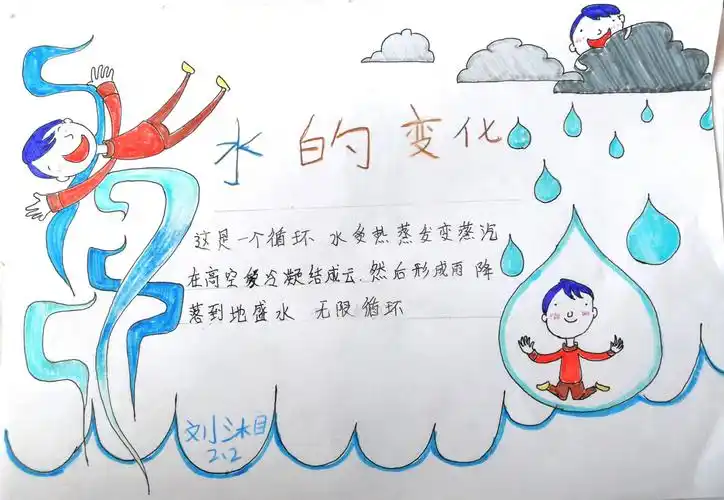 水的变化
这是一个循环 水受热蒸发变蒸汽
在高空受冷凝结成云.然后形成雨 降
落到地盛水 无限循环
刘沐目
2.2